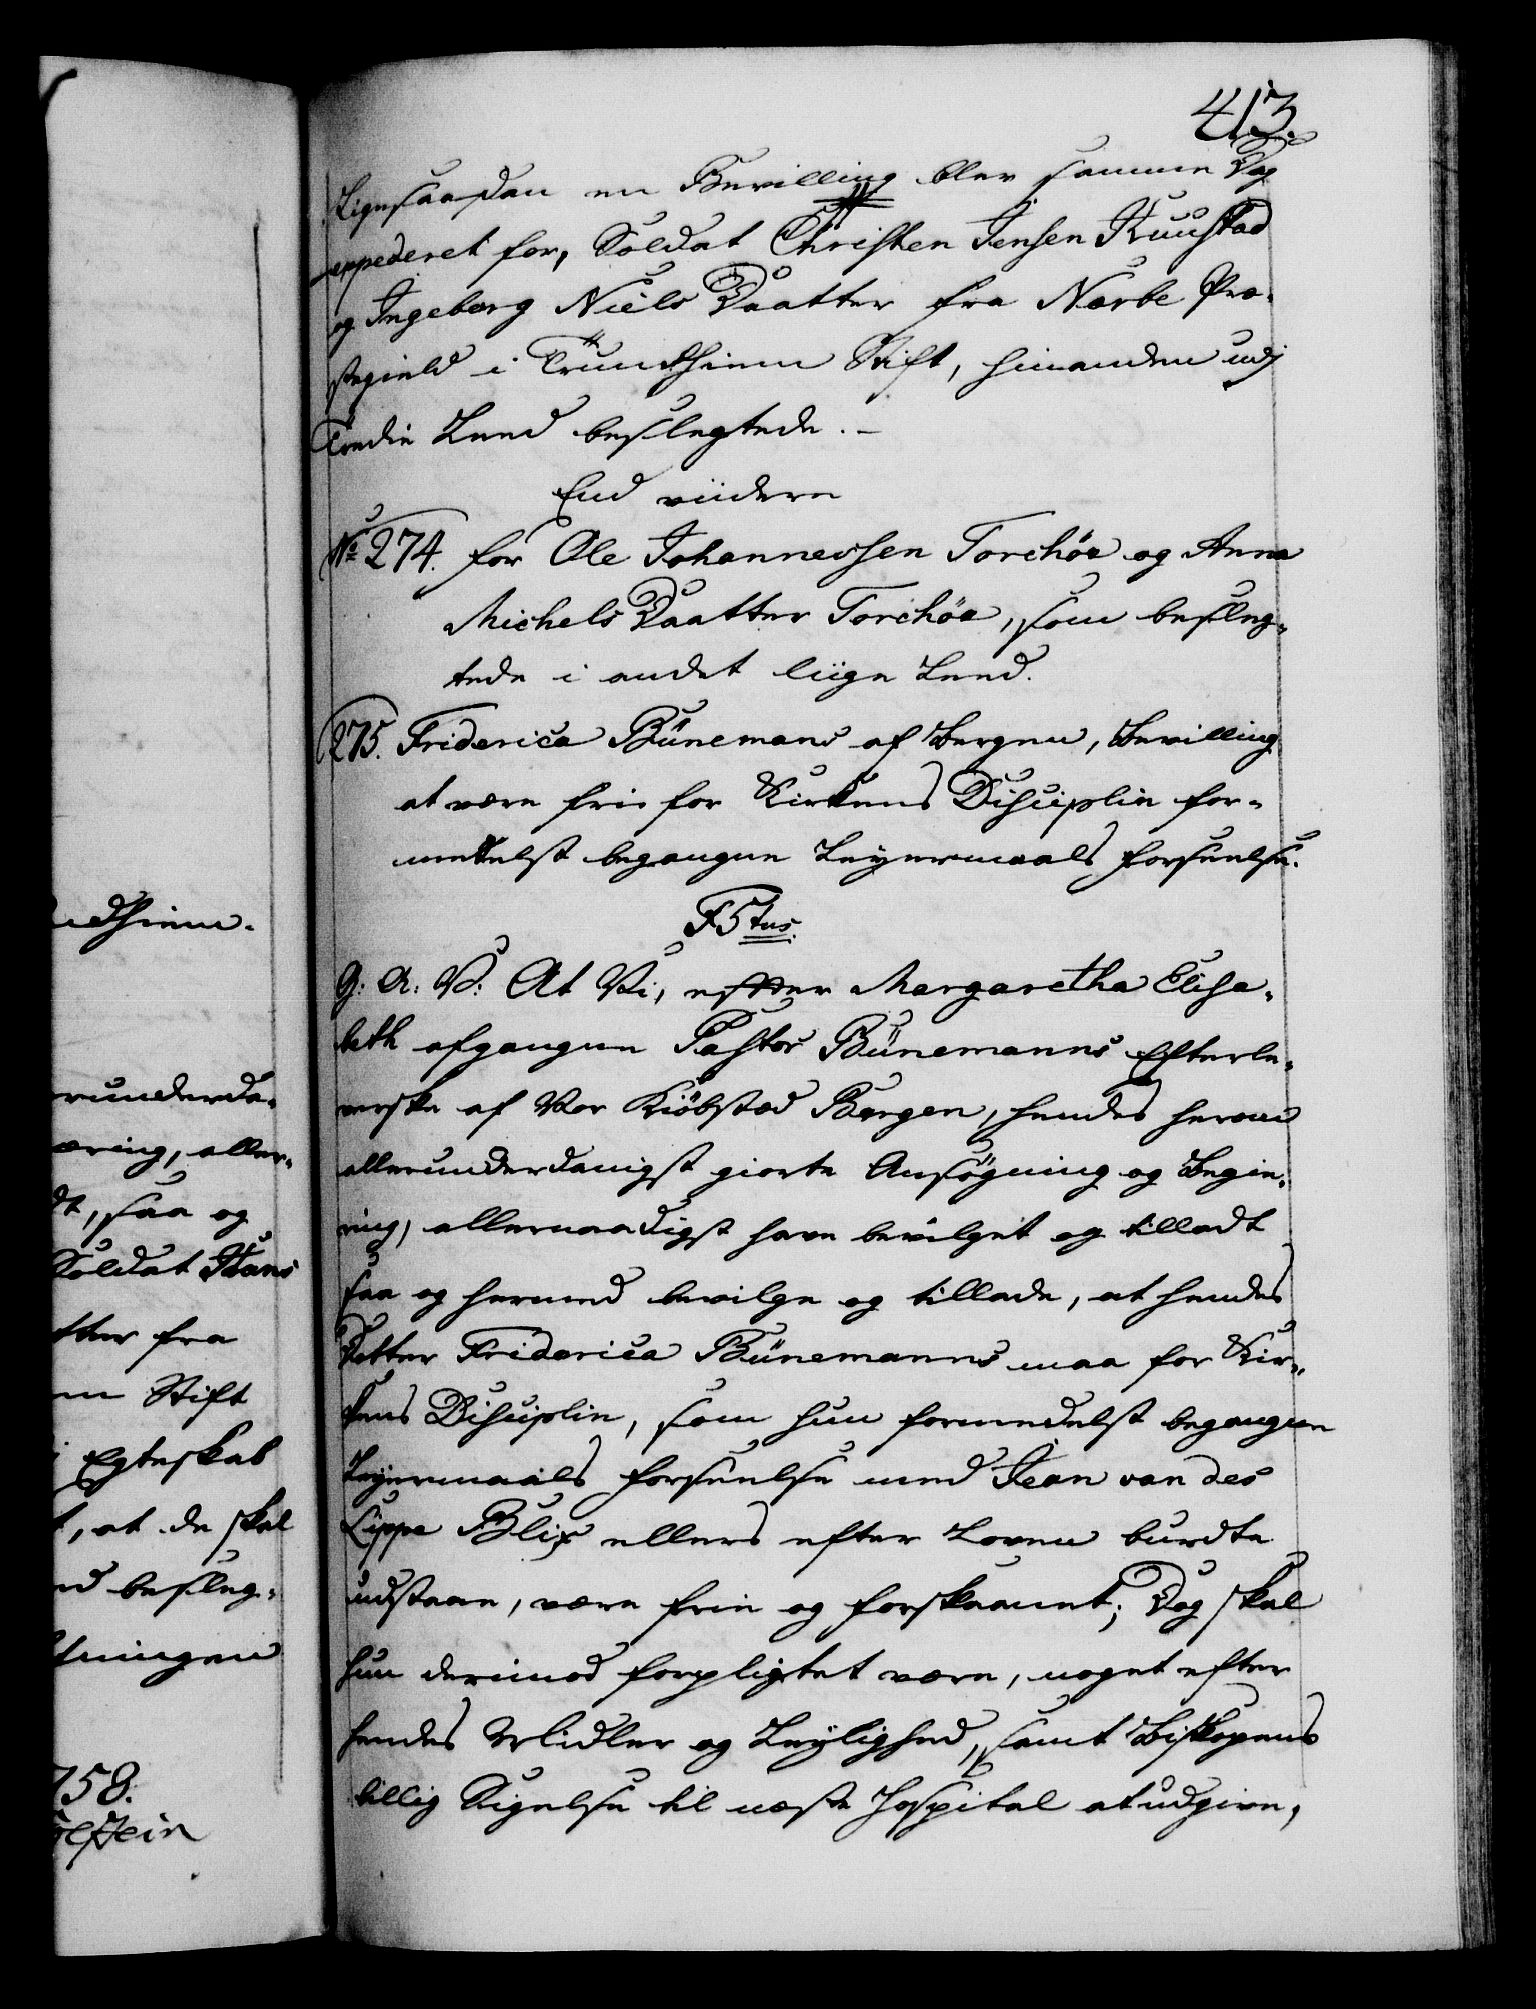 413.
Ligesaadan en Bevilling blev samme Dag
expederet for, Soldat Christen Jensen Kuustad
og Ingeborg Niels Daatter fra Nærbe Præ-
stegield i Trundhiem Stift, hinanden udj
Tredie Leed beslegtede. -
End viidere
No 274. for Ole Johannessen Torchöe og Anna
Michels Daatter Torchöe, som besleg-
tede i andet liige Leed.
275. Friderica Bünemans af Bergen, Bevilling
at være frie for Kirkens Disciplin for-
medelst begangne Leyermaals forseelse.
F5tus.
G: A: V: At Vi, efter Margaretha Elisa-
beth afgangne Pastor Bünemanns Efterle-
verske af Vor Kiöbstæd Bergen, hendes herom
allerunderdanigst giorte Ansögning og Begie-
ring, allernaadigst have bevilget og tilladt
saa og hermed bevilge og tillade, at hendes
Datter Friderica Bünemanns maa for Kir-
kens Disciplin, som hun formedelst begangne
Leyermaals forseelse med Jean van des
Lippe Blix ellers efter Loven burdte
udstaae, være frie og forskaanet; Dog skal
hun derimod forpligtet være, noget efter
hendes Midler og Leylighed, samt Biskopens
billig Sigelse til næste Hospital at udgive,
dhiem.
erunderda-
æring, aller-
dt, saa og
Soldat Hans
tter fra
m Stift
i Egteskab
t, at de skal
ed besleg-
tningen
758.